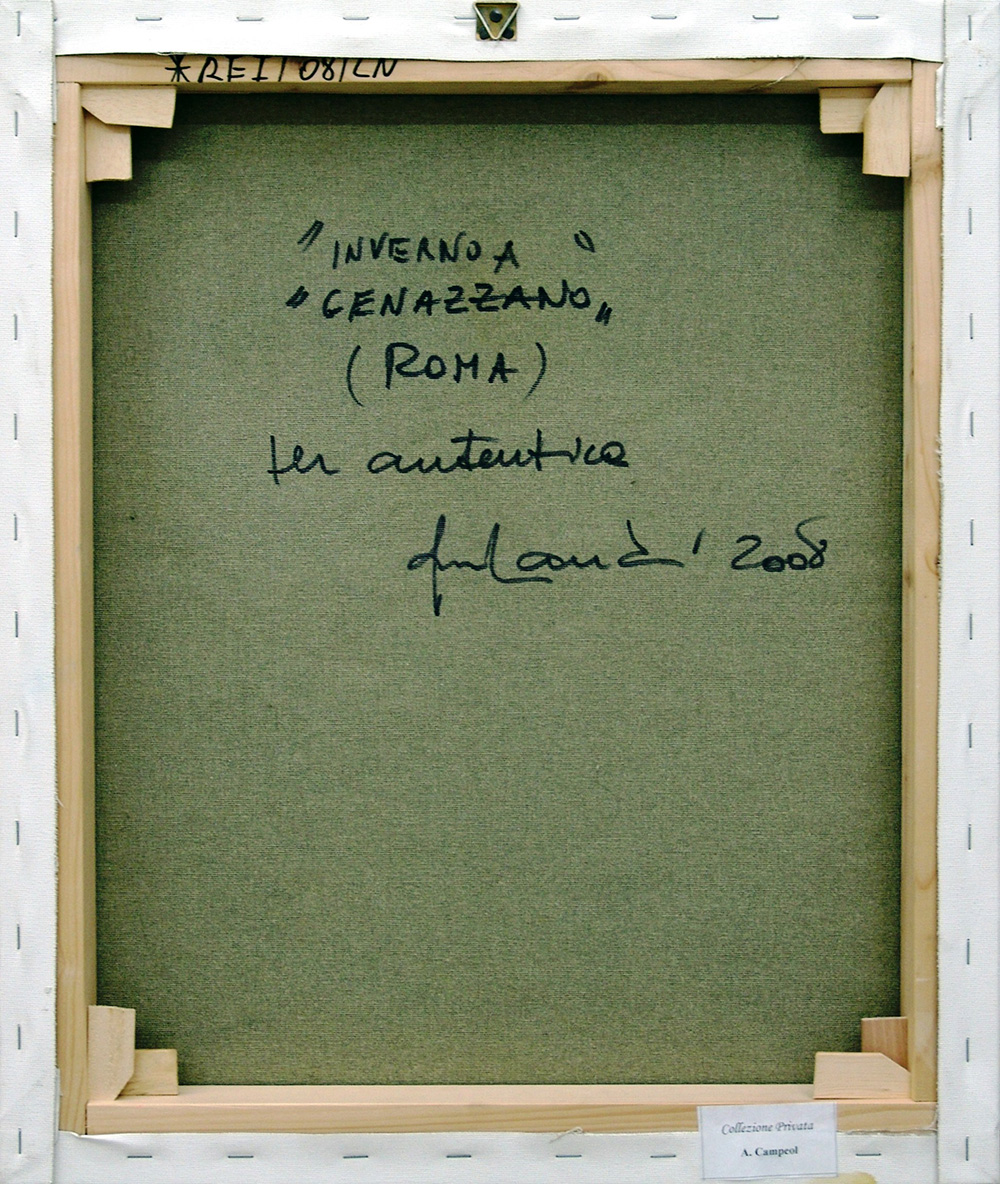 *REI/08/LN
"INVERNO A "
"GENAZZANO"
(ROMA)
per autentica
2008
Collezione Privata
A. Campeol